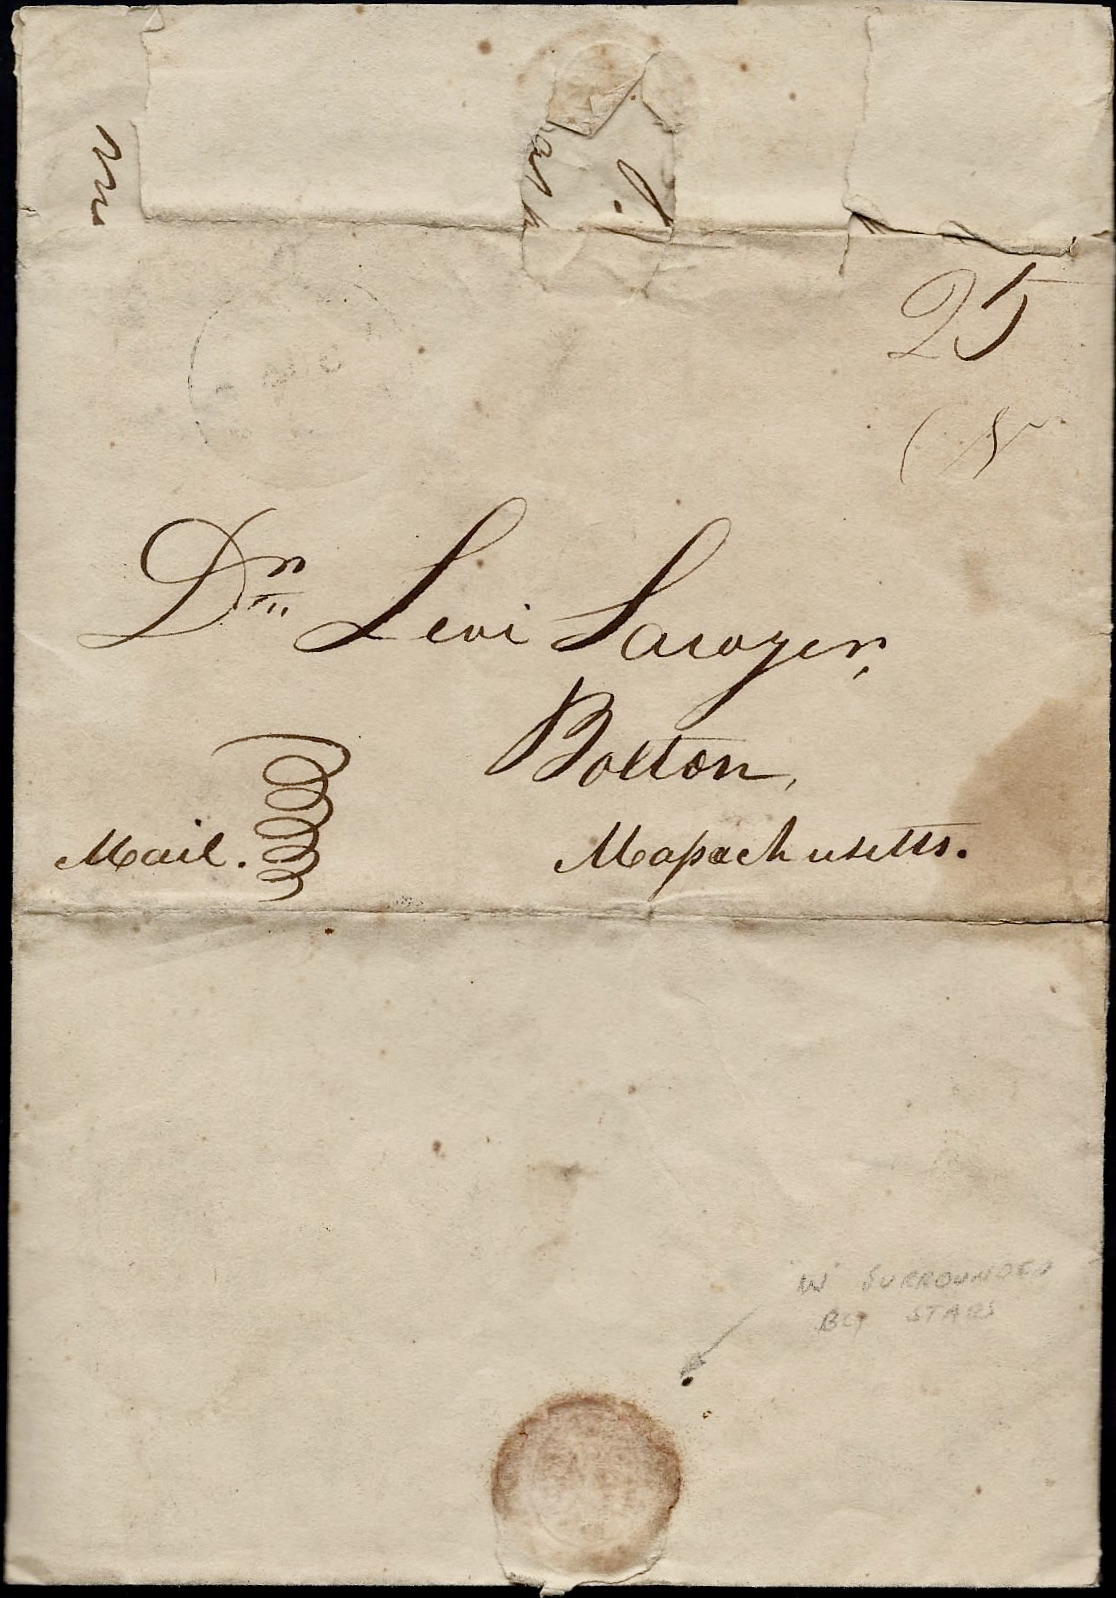 25
Dr Levi Sawyer,
Bolton,
Mail. Massachusetts.
W SURROUNDED
BY STARS